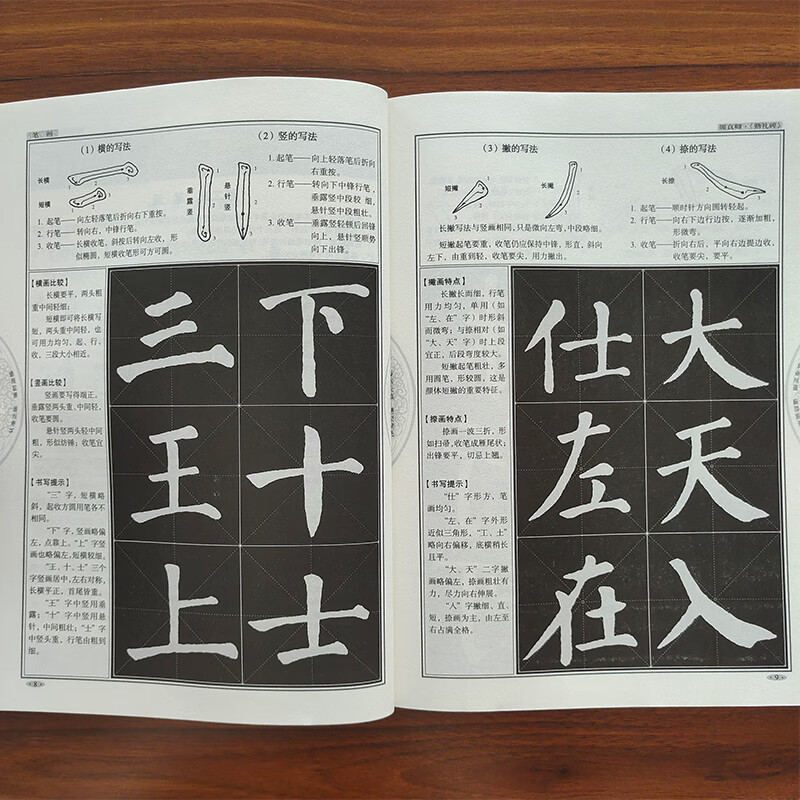 笔 画
(1) 横的写法
(2) 竖的写法
长横
短横
1. 起笔——向左轻落笔后折向右下重按。
2. 行笔——转向右,中锋行笔。
3. 收笔——长横收笔,斜按后转向左收, 形
似椭圆, 短横收笔形可方可圆。
垂露竖
悬针竖
1. 起笔——向上轻落笔后折向
右重按。
2. 行笔——转向下中锋行笔,
垂露竖中段较 细,
悬针竖中段粗壮。
3. 收笔——垂露竖轻顿后回锋
向上, 悬针竖顺势
向下出锋。
【横画比较】
长横要平, 两头粗
重中间轻细;
短横即可将长横写
短, 两头重中间轻, 也
可用力均匀, 起、行、
收, 三段大小相近。
【竖画比较】
竖画要写得端正。
垂露竖两头重、中间轻,
收笔要圆。
悬针竖两头轻中间
粗, 形似纺锤; 收笔宜
尖。
【书写提示】
“三”字, 短横略
斜, 起收方圆用笔各不
相同。
“下”字, 竖画略偏
左, 点靠上。“上”字竖
画也略偏左, 短横较细。
“王、十、士”三个
字竖画居中, 左右对称,
长横平正, 首尾皆重。
“王”字中竖用垂
露; “十”字中竖用悬
针, 中间粗壮; “士”字
中竖头重, 行笔由粗到
细。
三 下
王 十
上 士
8
颜真卿·《勤礼碑》
(3) 撇的写法
(4) 捺的写法
短撇
长撇
长撇写法与竖画相同, 只是微向左弯, 中段略细。
短撇起笔要重, 收笔仍应保持中锋, 形直, 斜向
左下, 由重到轻, 收笔要尖, 用力撇出。
长捺
1. 起笔——顺时针方向圆转轻起。
2. 行笔——向右下边行边按, 逐渐加粗,
形微弯。
3. 收笔——折向右后, 平向右边提边收,
收笔要尖, 要平。
【撇画特点】
长撇长而细, 行笔
用力均匀, 单用 (如
“左、在”字) 时形斜
而微弯; 与捺相对 (如
“大、天”字) 时上段
宜正, 后段弯度较大。
短撇起笔粗壮, 多
用圆笔, 形较圆, 这是
颜体短撇的重要特征。
【捺画特点】
捺画一波三折, 形
如扫帚, 收笔成雁尾状;
出锋要平, 切忌上翘。
【书写提示】
“仕”字形方, 笔
画均匀。
“左、在”字外形
近似三角形, “工、土”
略向右偏移, 底横稍长
且平。
“大、天”二字撇
画略偏左, 捺画粗壮有
力, 尽力向右伸展。
“入”字撇细、直、
短, 捺画为主, 由左至
右占满全格。
仕 大
左 天
在 入
9